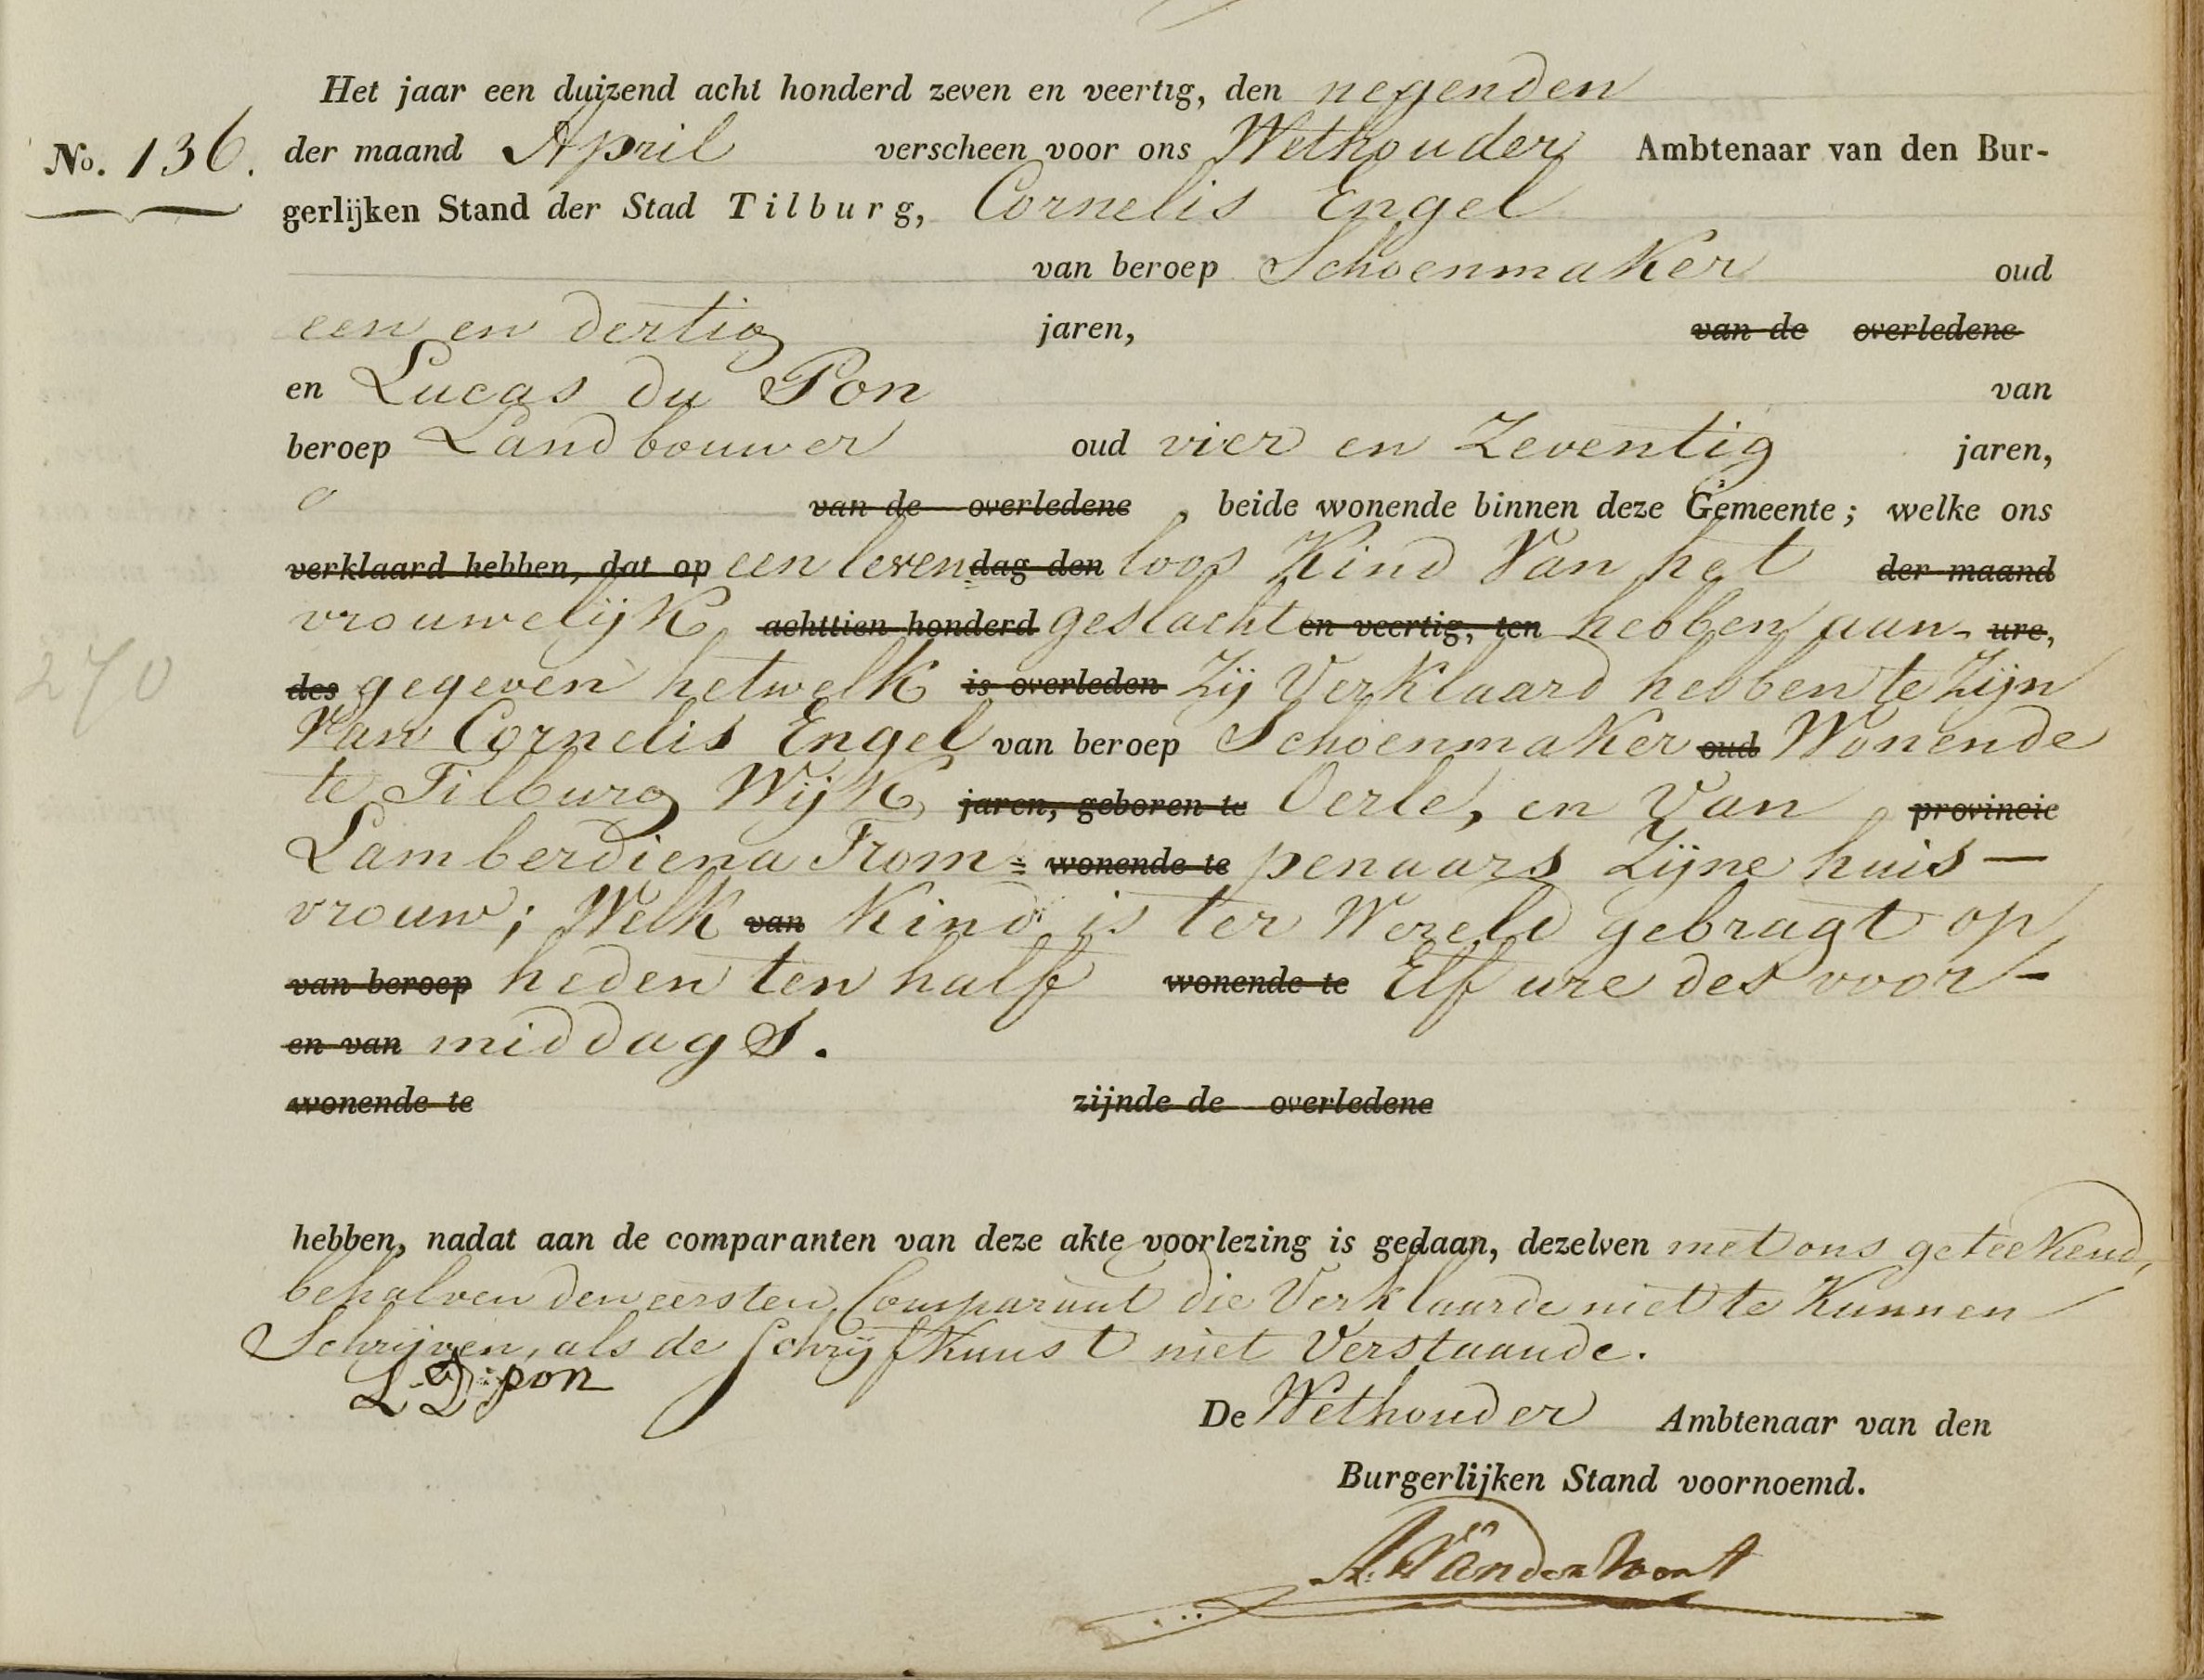 Het jaar een duizend acht honderd zeven en veertig, den negenden
No. 136. der maand April verscheen voor ons Wethouder Ambtenaar van den Bur-
gerlijken Stand der Stad Tilburg, Cornelis Engel
van beroep Schoenmaker oud
een en dertig jaren, van de overledene
en Lucas du Pon van
beroep Landbouwer oud vier en Zeventig jaren,
van de overledene, beide wonende binnen deze Gemeente; welke ons
verklaard hebben, dat op een leven dag den loos Kind Van het der maand
vrouwelijk achttien honderd geslacht en veertig, ten hebben aan- ure,
des gegeven hetwelk is overleden Zij Verklaard hebben te Zijn
Van Cornelis Engel van beroep Schoenmaker oud Wonende
te Tilburg Wijk jaren, geboren te Oerle, en Van provincie
Lamberdiena From= wonende te penaars Zijne huis—
vrouw; Welk van Kind is ter Wereld gebragt op
van beroep heden ten half wonende te Elf ure des voor-
en van middags.
wonende te zijnde de overledene
270
hebben, nadat aan de comparanten van deze akte voorlezing is gedaan, dezelven met ons geteekend,
behalven den eersten Comparant die Verklaarde niet te Kunnen
Schrijven, als de Schrijfkunst niet Verstaande.
L D:pon
De Wethouder Ambtenaar van den
Burgerlijken Stand voornoemd.